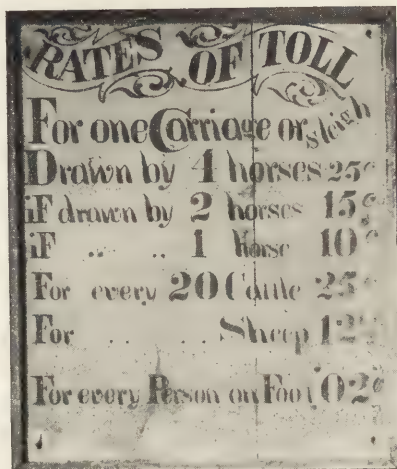 RATES OF TOLL
For one Carriage or sleigh
Drawn by 4 horses 25c
iF drawn by 2 horses 15c
iF „ „ 1 Horse 10c
For every 20 Cattle 25c
For „ „ Sheep 12c
For every Person on Foot 02c